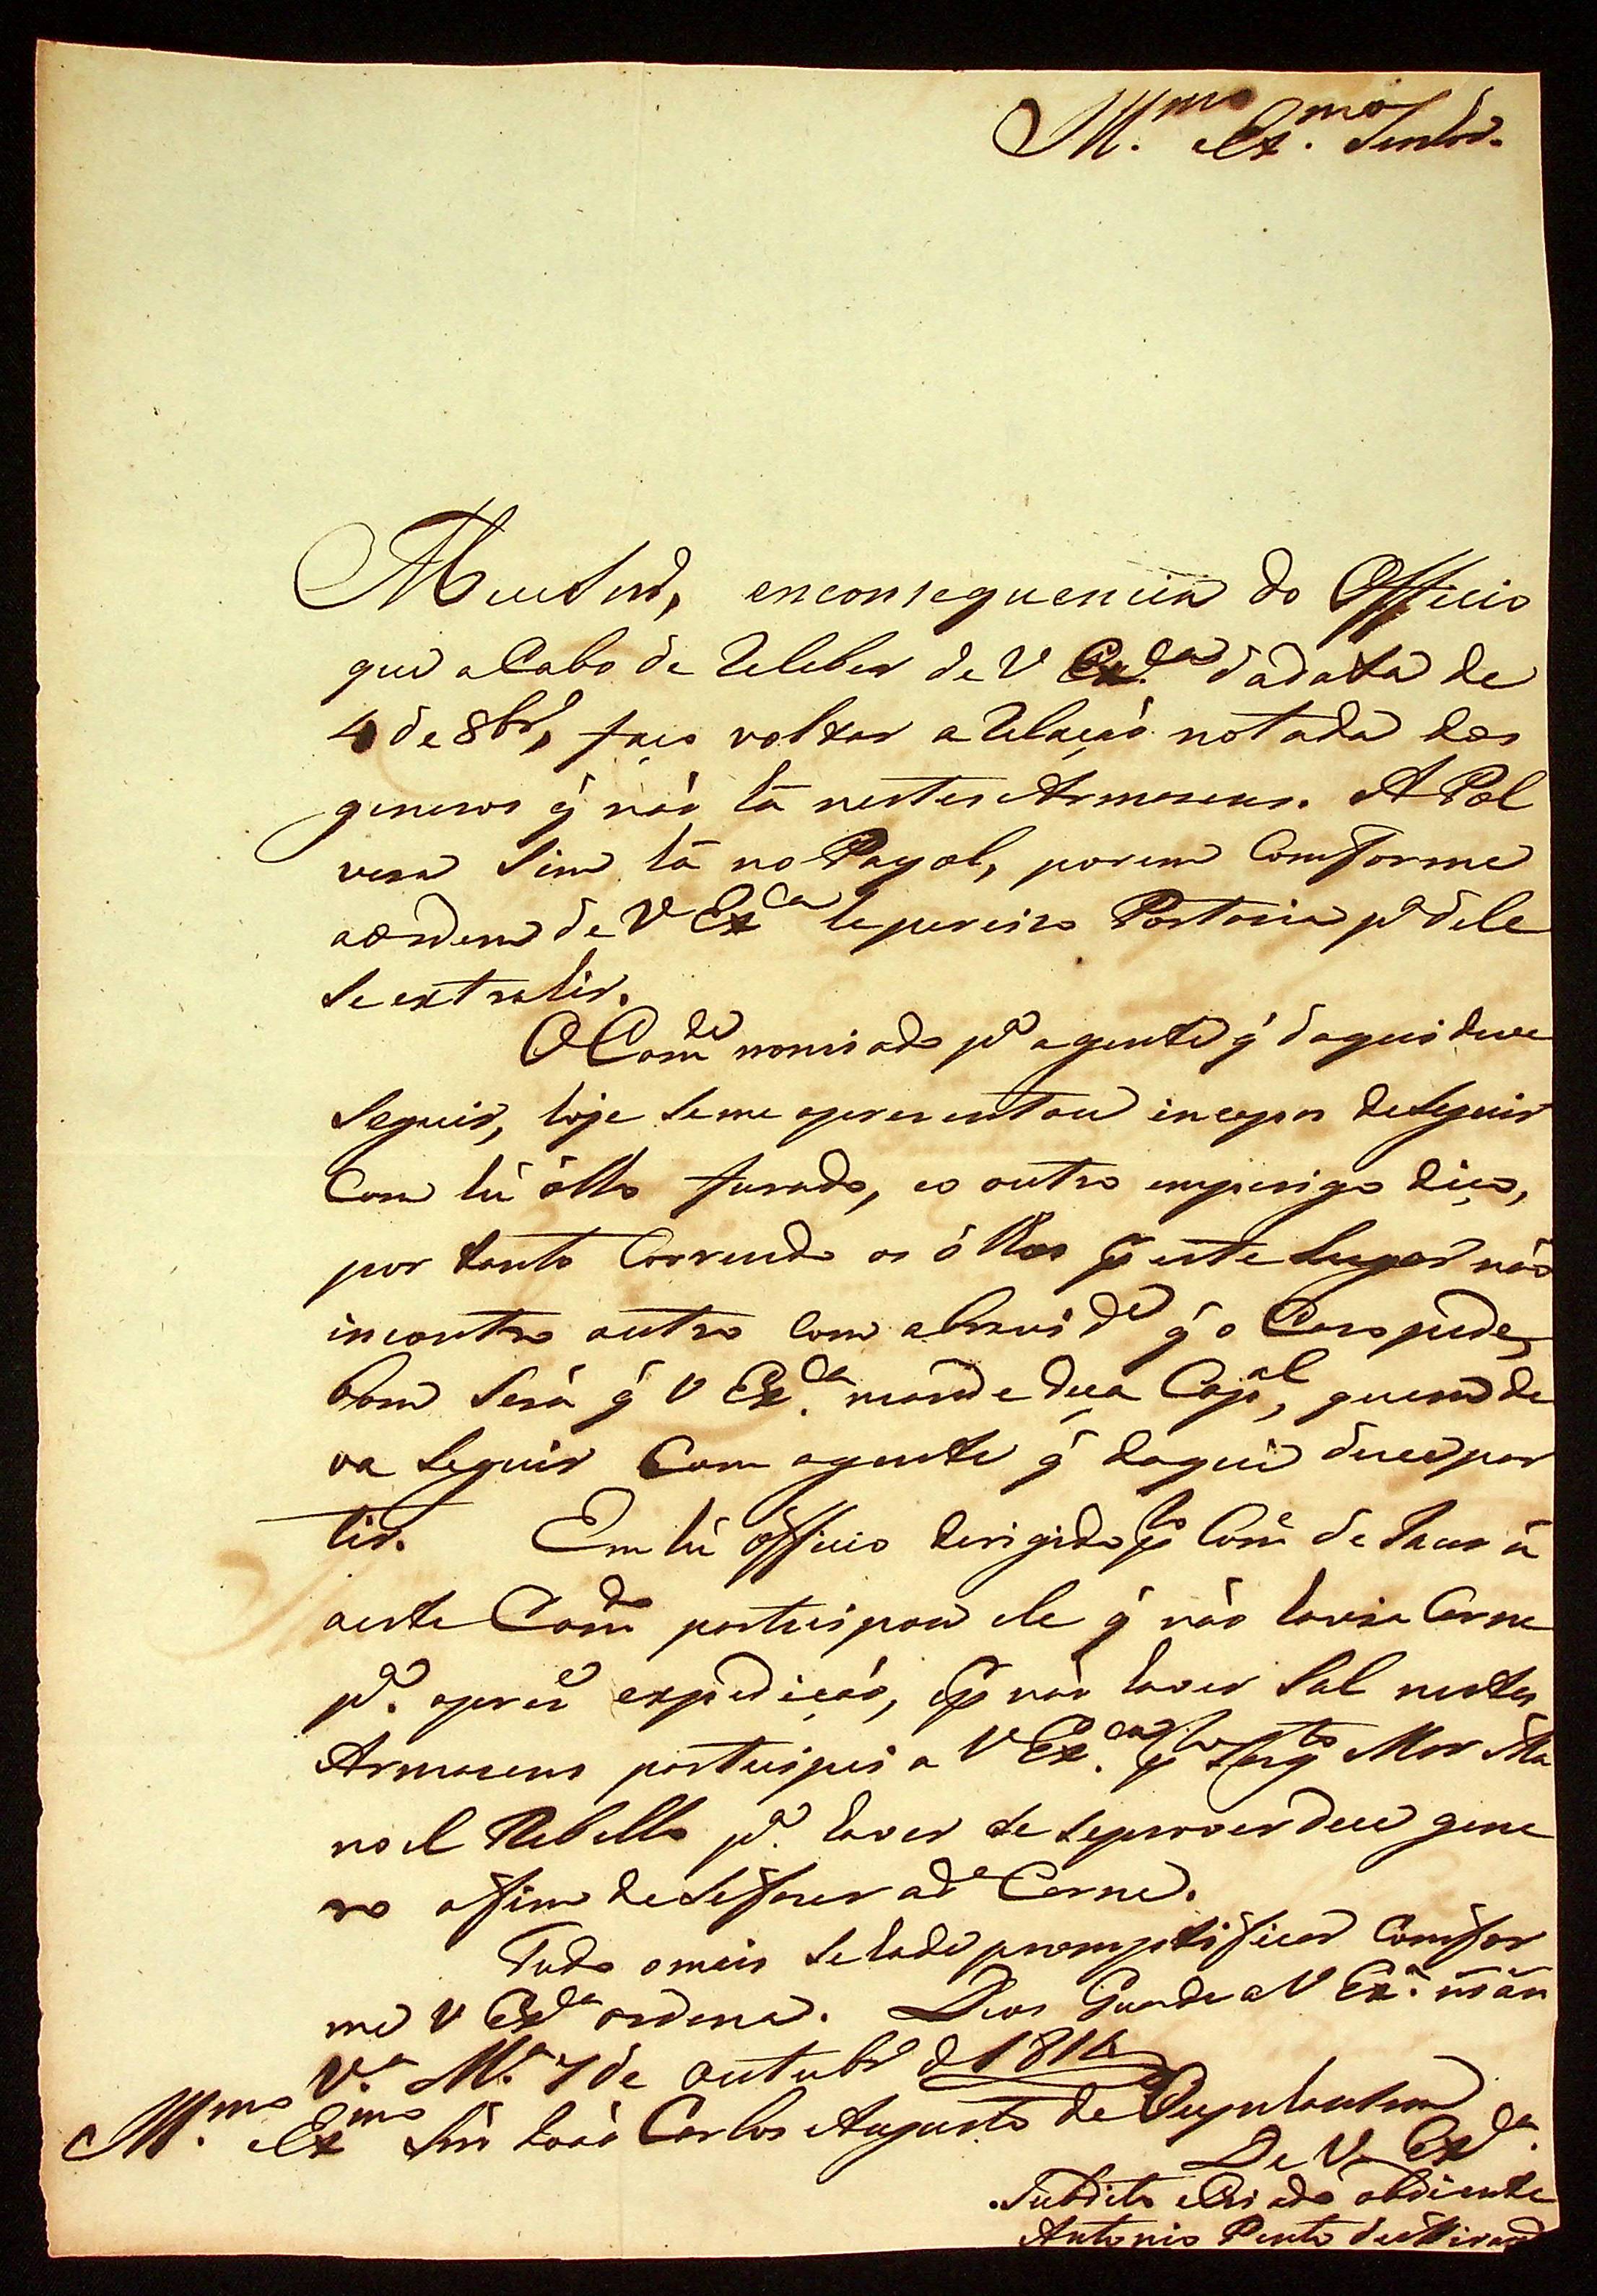 Ill.mo Ex.mo Senhor.
Meu Senr, enconsequencia do Officio
que aCabo de Receber de V Ex.ca dadata de
4 de 8br.o, faço voltar aRelação notada dos
generos q' não há nestes Armasens. A Pol
vera Sim há no Payol, porem Comforme
aordem de V Exca he perciso Portaria p.a dele
Se extrahir.
O Comde nomiado p.a agente q' daqui deve
Seguir, hoje Seme aprezentou incapas deSeguir
Com hũ ólho furado, eo outro emperigo diço,
por tanto Correndo os ólhos por este Lugar não
incontro outro com abrevide q' o Caso pede,
bom Será q' V Ex.ca mande deça Capal, quem de
va Seguir Com agente q' daqui deve par
tir. Em hũ officio derigido pelo Come de
aeste Comdo partecipou ele q' não havia Carne
p.a aprez.e expedição, e por não haver Sal nestes
Armasens partecipei a V Ex.ca pelo Sargto Mor Ma
noel Rebello p.a haver de Seprover dece gene
ro afim deSefazer ad.a Carne.
Tudo omais Sehade promptificar Comfor
me V Ex.ca ordena. Deos Guarde a V Ex.a ms an
V.a M.a 7 de outubr.o d 1818
Ill.mo Ex.mo Snr João Carlos Augusto de Oeynhausen
De V. Ex.ca
Subdito e Criado obdiente
Antonio Pento de